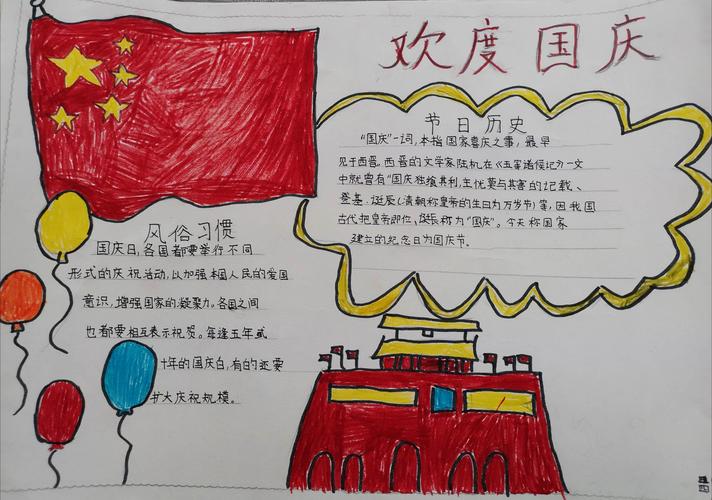 欢度国庆
节日历史
"国庆"一词,本指国家喜庆之事,最早
见于西晋。西晋的文学家陆机在《五等诸侯记》一文
中就曾有"国庆独飨其利,主忧莫与其害"的记载、
登基.诞辰(清朝称皇帝的生日为万岁节)等,因我国
古代把皇帝即位、诞辰称为"国庆"。今天称国家
建立的纪念日为国庆节。
风俗习惯
国庆日,各国都要举行不同
形式的庆祝活动,以加强本国人民的爱国
意识,增强国家的凝聚力。各国之间
也都要相互表示祝贺。每逢五年或
十年的国庆日,有的还要
扩大庆祝规模。